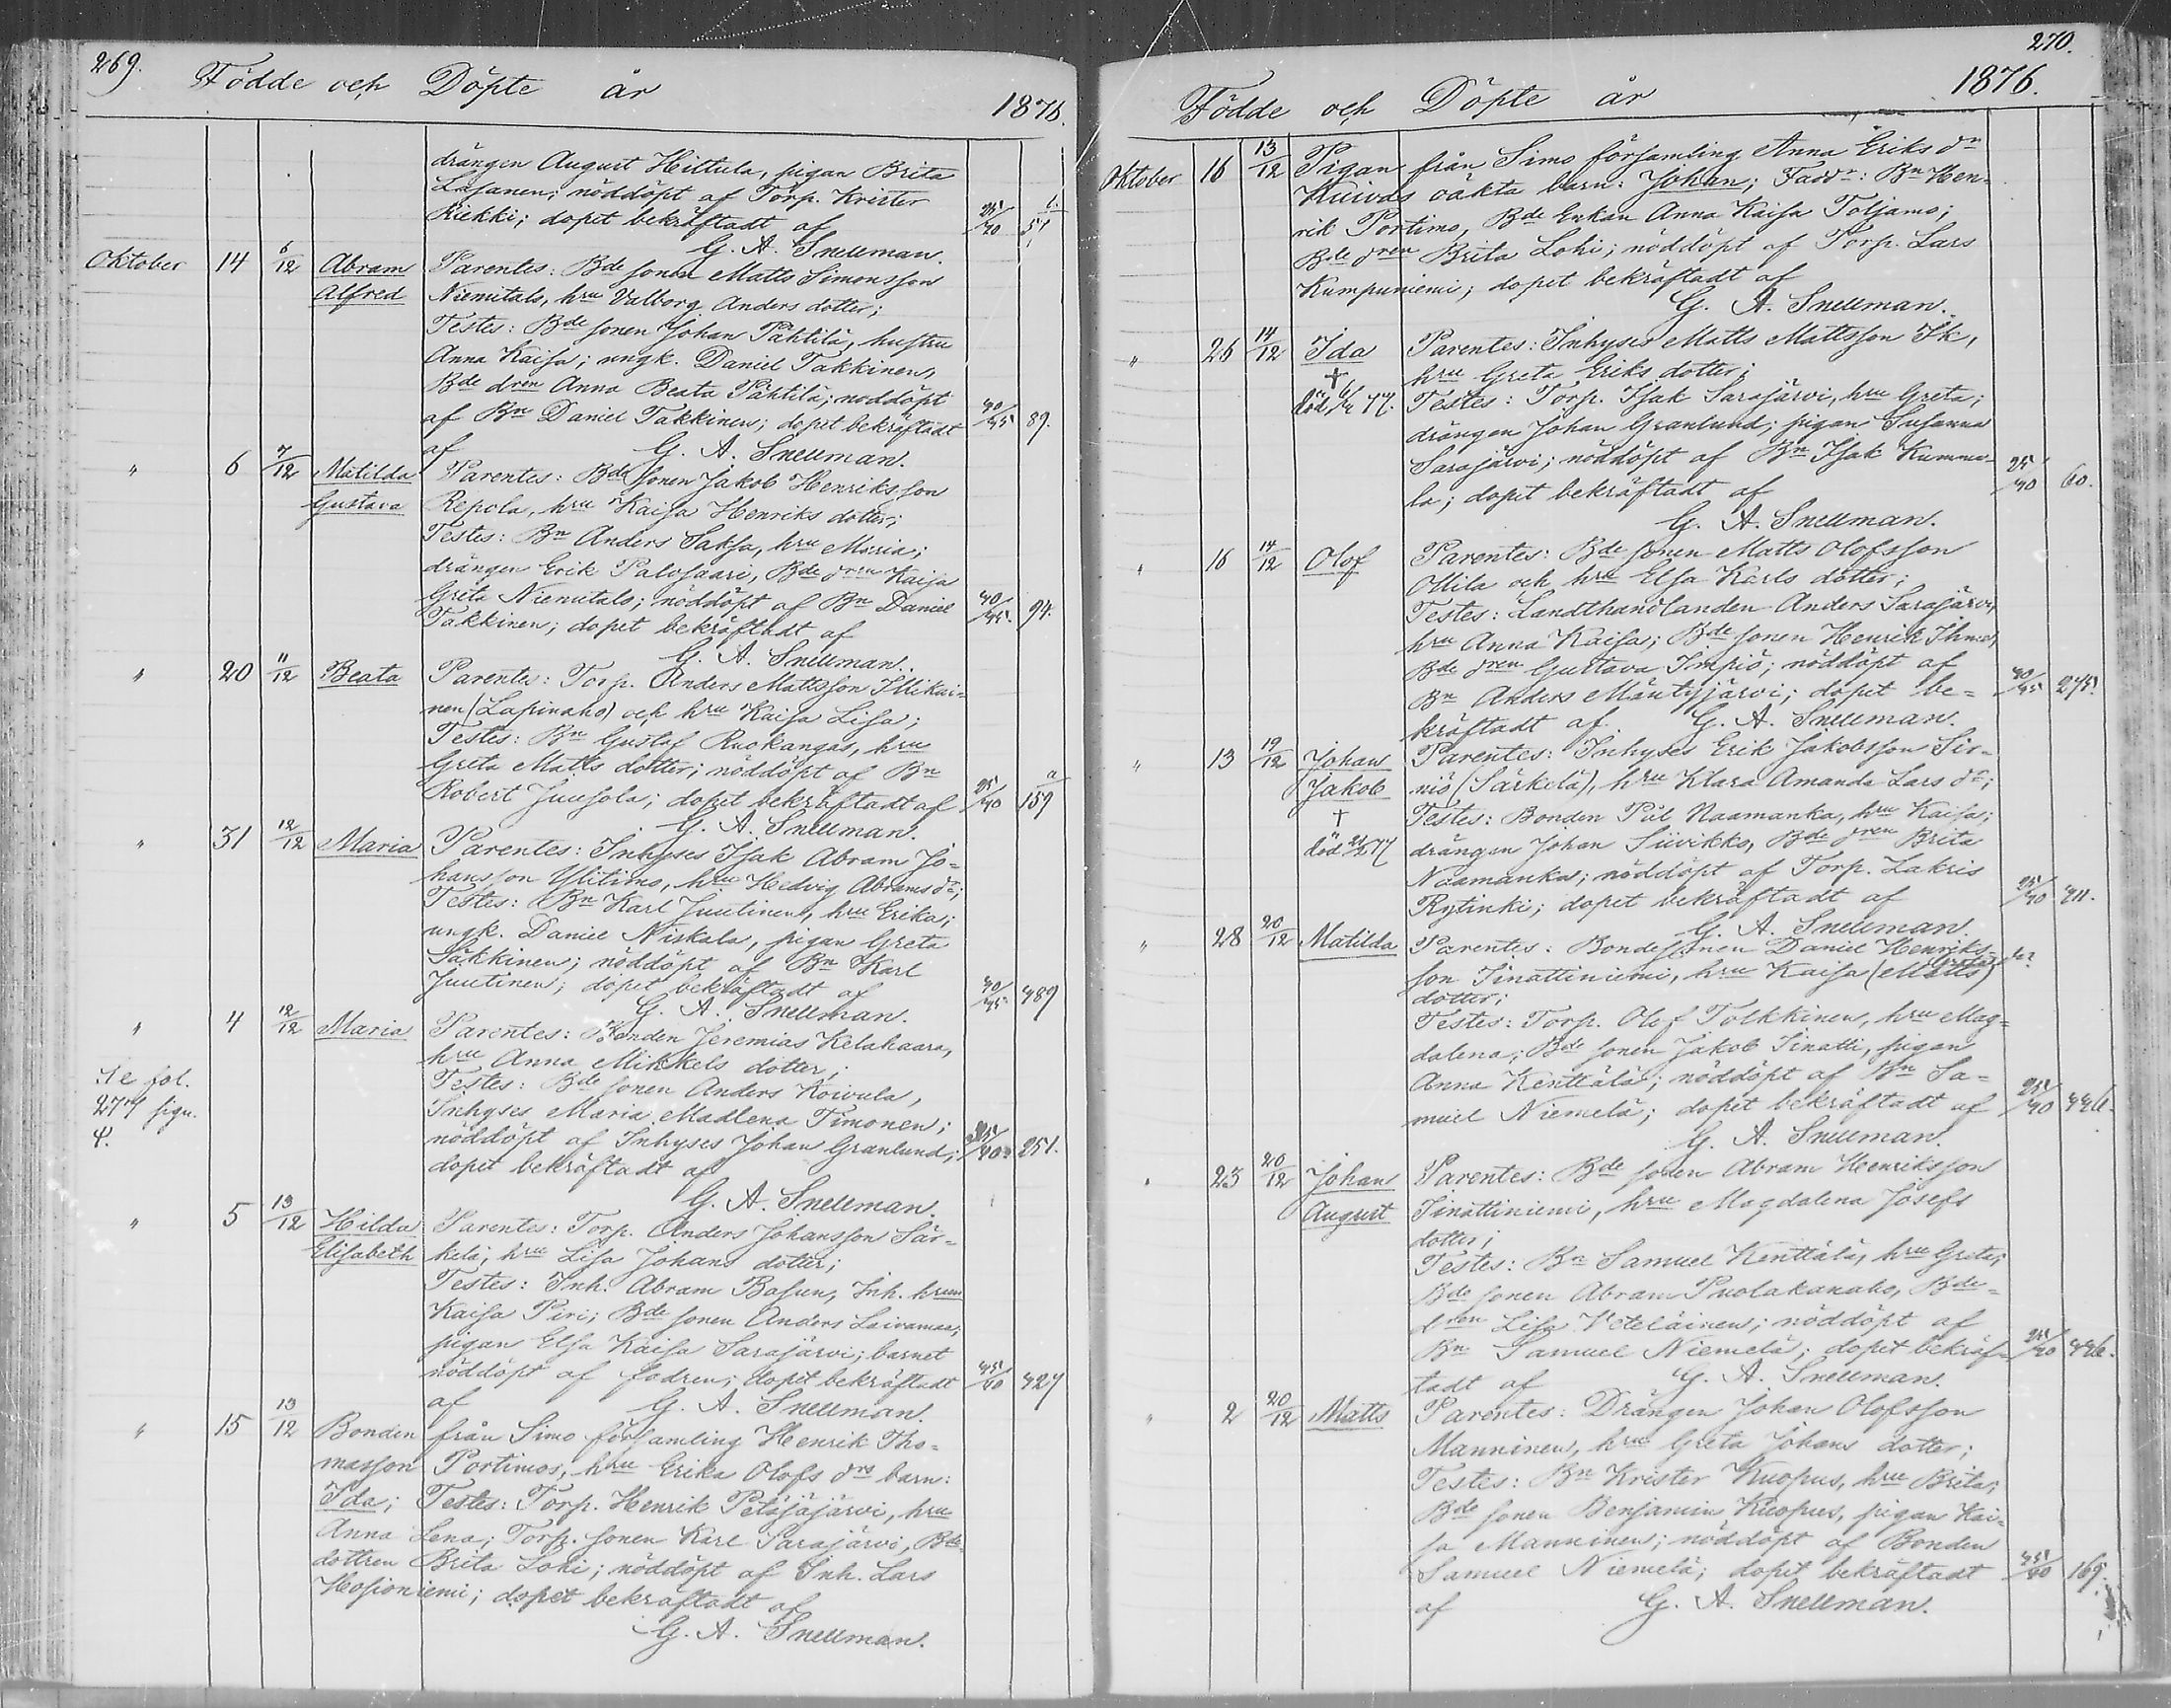 269.
Födde och Döpte år 1876.
drängen August Hittula, pigan Brita
Lasanen; nöddöpt af Torp. Krister
Riekki; dopet bekräftadt af 25/30 51
G. A. Snellman.
Oktober 14 6/12 Abram Parentes: Bde sonen Matts Simonsson
Alfred Niemitalo, hru Valborg Anders dotter;
Testes: Bde sonen Johan Pahtila, hustru
Anna Kaisa; ungk. Daniel Takkinen,
Bde dren Anna Beata Pahtila; nöddöpt
af Bn Daniel Takkinen; dopet bekräftadt 89.
af G. A. Snellman.
" 6 7/12 Matilda Parentes: Bde sonen Jakob Henriksson
Gustava Repola, hru Kaisa Henriks dotter;
Testes: Bn Anders Saksa, hru Maria;
drängen Erik Palosaari, Bde dren Kaisa
Greta Niemitalo; nöddöpt af Bn Daniel 94.
Takkinen; dopet bekräftadt af
G. A. Snellman.
" 20 11/12 Beata Parentes: Torp. Anders Mattsson Illikai-
nen (Lapinaho) och hru Kaisa Lisa;
Testes: Bn Gustaf Ruokangas, hru
Greta Matts dotter; nöddöpt af Bn
Robert Juusola; dopet bekräftadt af 159
G. A. Snellman.
" 31 12/12 Maria Parentes: Inhyses Isak Abram Jo-
hansson Ylitimo, hru Hedvig Abrams dr;
Testes: Bn Karl Juutinen, hru Erika;
ungk. Daniel Niskala, pigan Greta
Säkkinen; nöddöpt af Bn Karl
Juutinen; dopet bekräftadt af 489
G. A. Snellman.
" 4 12/12 Maria Parentes: Bonden Jeremias Kelahaara,
hru Anna Mikkels dotter;
Se fol. Testes: Bde sonen Anders Koivula,
Inhyses Maria Madlena Timonen;
nöddöpt af Inhyses Johan Granlund; 251.
dopet bekräftadt af
G. A. Snellman.
" 5 13/12 Hilda Parentes: Torp. Anders Johansson Sär-
Elisabeth kelä, hru Lisa Johans dotter;
Testes: Inh. Abram Basun, Inh. hrun
Kaisa Piri; Bde sonen Anders Laivamaa;
pigan Elsa Kaisa Sarajärvi; barnet
nöddöpt af fadren; dopet bekräftadt 427
af G. A. Snellman.
" 15 13/12 Bonden från Simo församling Henrik Tho-
masson Portimos, hru Erika Olofs drs barn:
Ida; Testes: Torp. Henrik Petäjäjärvi, hru
Anna Lena; Torp. sonen Karl Sarajärvi, Bde
dottren Brita Lohi; nöddöpt af Inh. Lars
Hosioniemi; dopet bekräftadt af
G. A. Snellman.
270.
Födde och Döpte år 1876.
Oktober 16 13/12 Pigan från Simo församling Anna Eriks dr
Kuivas oäkta barn: Johan; Faddr: Bn Hen-
rik Portimo, Bde Enkan Anna Kaisa Toljamo;
Bde dren Brita Lohi; nöddöpt af Torp. Lars
Kumpuniemi; dopet bekräftadt af
G. A. Snellman.
" 26 14/12 Ida Parentes: Inhyses Matts Mattsson Ik,
† hru Greta Eriks dotter;
död 77. Testes: Torp. Isak Sarajärvi, hru Greta;
drängen Johan Granlund; pigan Susanna
Sarajärvi; nöddöpt af Bn Isak Kummu-
la; dopet bekräftadt af 25/30 60.
G. A. Snellman.
" 16 14/12 Olof Parentes: Bde sonen Matts Olofsson
Ollila och hru Elsa Karls dotter;
Testes: Landthandlanden Anders Sarajärvi,
hru Anna Kaisa; Bde sonen Henrik Ihme,
Bde dren Gustava Impiö; nöddöpt af
Bn Anders Mäntyjärvi; dopet be-
kräftadt af G. A. Snellman.
" 13 19/12 Johan Parentes: Inhyses Erik Jakobsson Sir-
Jakob niö (Särkelä), hru Klara Amanda Lars dr;
† Testes: Bonden Pål Naamanka, hru Kaisa;
död 77 drängen Johan Siivikko, Bde dren Brita
Naamanka; nöddöpt af Torp. Zakris
Rytinki; dopet bekräftadt af
G. A. Snellman.
" 28 20/12 Matilda Parentes: Bondesonen Daniel Henriks-
son Sinattiniemi, hru Kaisa (Matts)
dotter;
Testes: Torp. Olof Tolkkinen, hru Mag-
dalena; Bde sonen Jakob Sinatti, pigan
Anna Kenttälä; nöddöpt af Bn Sa-
muel Niemelä; dopet bekräftadt af 446.
G. A. Snellman.
" 23 20/12 Johan Parentes: Bde sonen Abram Henriksson
August Sinattiniemi, hru Magdalena Josefs
dotter;
Testes: Bn Samuel Kenttälä, hru Greta;
Bde sonen Abram Puolakanaho, Bde-
dren Lisa Veteläinen; nöddöpt af
Bn Samuel Niemelä; dopet bekräf- 446.
tadt af G. A. Snellman.
" 2 20/12 Matts Parentes: Drängen Johan Olofsson
Manninen, hru Greta Johans dotter;
Testes: Bn Krister Kuopus, hru Brita;
Bde sonen Benjamin Kuopus, pigan Kai-
sa Manninen; nöddöpt af Bonden
Samuel Niemelä; dopet bekräftadt 169.
af G. A. Snellman.